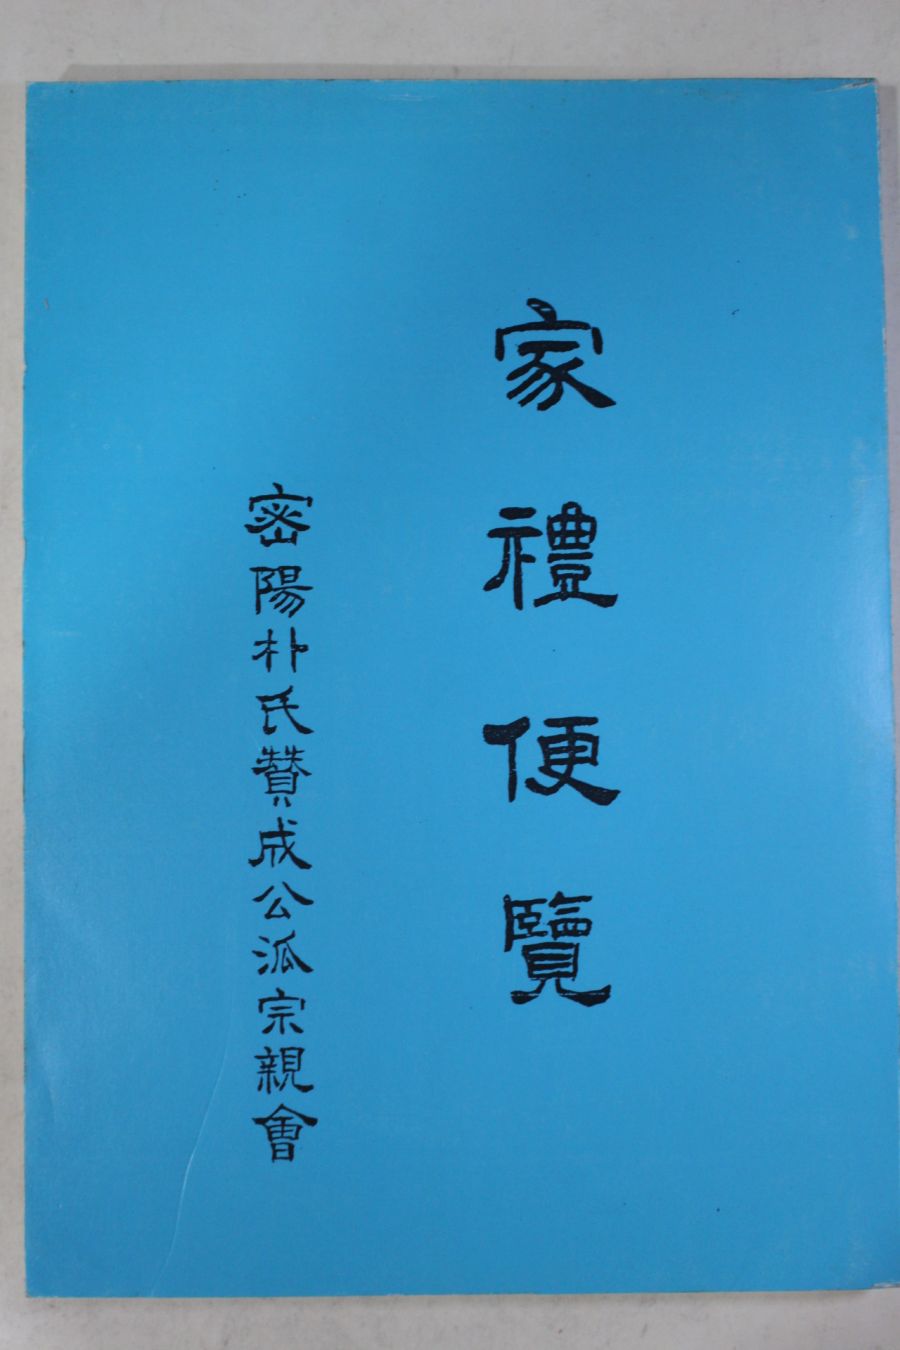 家禮便覽
密陽朴氏贊成公派宗親會